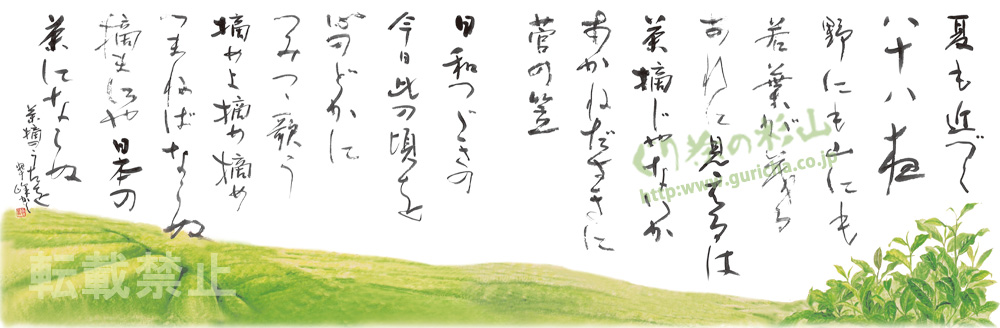 夏も近づく
八十八夜
野にも山にも
若葉が茂る
あれに見えるは
茶摘じゃないか
あかねだすきに
菅の笠
日和つゞきの
今日此の頃を
心のどかに
つみつゝ歌う
摘めよ摘め摘め
つまねばならぬ
摘まにゃ日本の
茶にならぬ
茶摘うたを
ぐり茶の杉山
http:www.guricha.co.jp
転載禁止